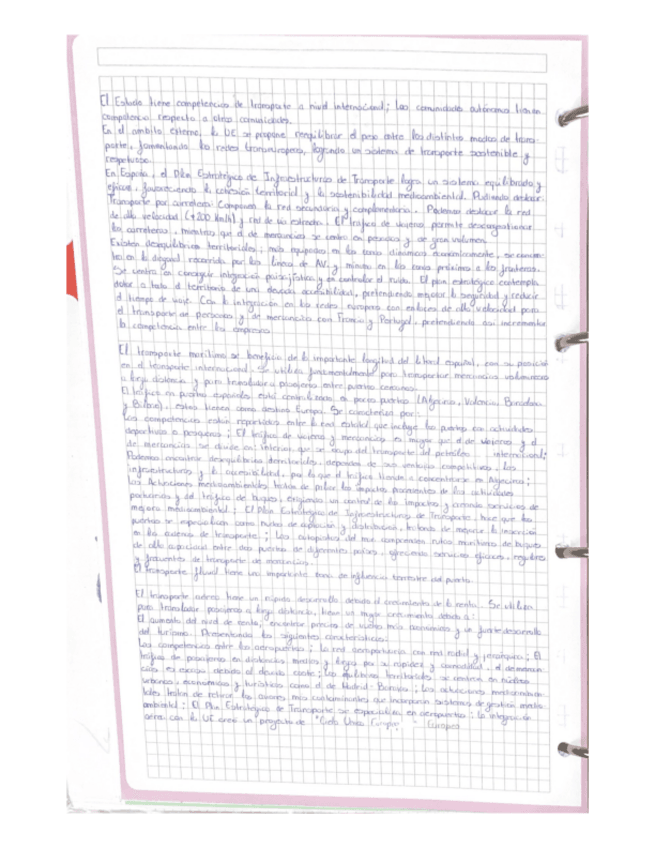 El Estado tiene competencias de transporte a nivel internacional; las comunidades autónomas tienen
competencia respecto a otras comunidades.
En el ámbito externo, la UE se propone reequilibrar el peso entre los distintos modos de trans-
porte, fomentando las redes transeuropeas, logrando un sistema de transporte sostenible y
respetuoso.
En España, el Plan Estratégico de Infraestructuras de Transporte logra un sistema equilibrado y
eficaz, favoreciendo la cohesión territorial y la sostenibilidad medioambiental. Pudiendo destacar:
Transporte por carretera: Componen la red secundaria y complementaria. Podemos destacar la red
de alta velocidad (+200 Km/h) y red de vía estrecha. El tráfico de viajeros permite descongestionar
las carreteras, mientras que el de mercancías se centra en pesados y de gran volumen.
Existen desequilibrios territoriales; más equipadas en las zonas dinámicas económicamente,
en el desigual recorrido por las líneas de AV y mínimo en las zonas próximas a las fronteras.
Se centra en conseguir integración paisajística y en controlar el ruido. El plan estratégico contempla
dotar a todo el territorio de una elevada accesibilidad, pretendiendo mejorar la seguridad y reducir
el tiempo de viaje. Con la integración en las redes europeas con enlaces de alta velocidad para
el transporte de personas y de mercancías con Francia y Portugal, pretendiendo así incrementar
la competencia entre las empresas.
El transporte marítimo se beneficia de la importante longitud del litoral español, con su posición
en el transporte internacional. Se utiliza fundamentalmente para transportar mercancías voluminosas
a larga distancia y para transbordar a pasajeros entre puertos cercanos.
El tráfico en puertos españoles está controlado en pocos puertos (Algeciras, Valencia, Barcelona
y Bilbao), estos tienen como destino Europa. Se caracteriza por:
Las competencias están repartidas entre la red estatal que incluye los puertos con actividades
deportivas o pesqueras; El tráfico de viajeros y mercancías es mayor que el de viajeros y el
de mercancías se divide en: interior que se ocupa del transporte del petróleo internacional;
Podemos encontrar desequilibrios territoriales, depende de sus ventajas competitivas, las
infraestructuras y la accesibilidad, por lo que el tráfico tiende a concentrarse en Algeciras;
Las Actuaciones medioambientales tratan de paliar los impactos procedentes de las actividades
portuarias y del tráfico de buques, exigiendo un control de los impactos y creando servicios de
mejora medioambiental; El Plan Estratégico de Infraestructuras de Transporte, hace que los
puertos se especialicen como nudos de captación y distribución, tratando de mejorar la inserción
en la cadena de transporte; Las autopistas del mar comprenden rutas marítimas de buques
de alta capacidad entre dos puertos de diferentes países, ofreciendo servicios eficaces, regulares
y frecuentes de transporte de mercancías.
El transporte fluvial tiene una importante zona de influencia terrestre del puerto.
El transporte aéreo tiene un rápido desarrollo debido al crecimiento de la renta. Se utiliza
para trasladar pasajeros a larga distancia, tiene un mayor crecimiento debido a:
El aumento del nivel de renta, encontrar precios de vuelos más económicos y un fuerte desarrollo
del turismo. Presentando las siguientes características:
Las competencias entre los aeropuertos; la red aeroportuaria con red radial y jerárquica; El
tráfico de pasajeros en distancias medias y largas por su rapidez y comodidad, el de mercan-
cías es escaso debido al elevado coste; Los territoriales se centran en núcleos
urbanos, económicos y turísticos como el de Madrid-Barajas; Las actuaciones medioambien-
tales tratan de retirar los aviones más contaminantes que incorporan sistemas de gestión medio
ambiental; El Plan Estratégico de Transporte se especializa en aeropuertos; la integración
aérea con la UE creó un proyecto de "Cielo Único Europeo". - Europeo